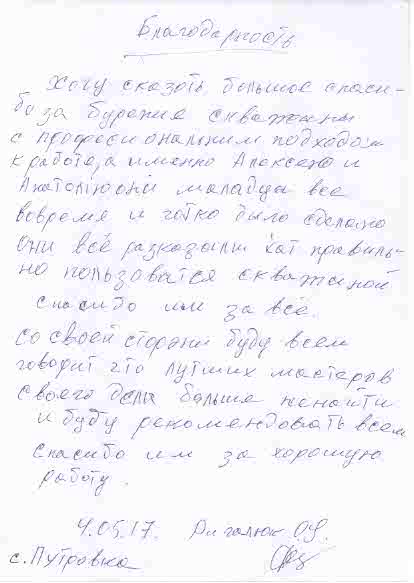 Благодарность
Хочу сказать большое спаси-
бо за бурение скважины
с професиональним подходом
к работе, а именно Алексею и
Анатолию они маладца все
вовремя и чотко было сделано
они всё разказали как правиль-
но пользоватся скважиной
спасибо им за всё.
Со своей сторони буду всем
говорит что лутших мастеров
своего дела больше ненайти
и буду рекомендовать всем
спасибо им за хорошую
работу.
4.05.17.
с. Путровка